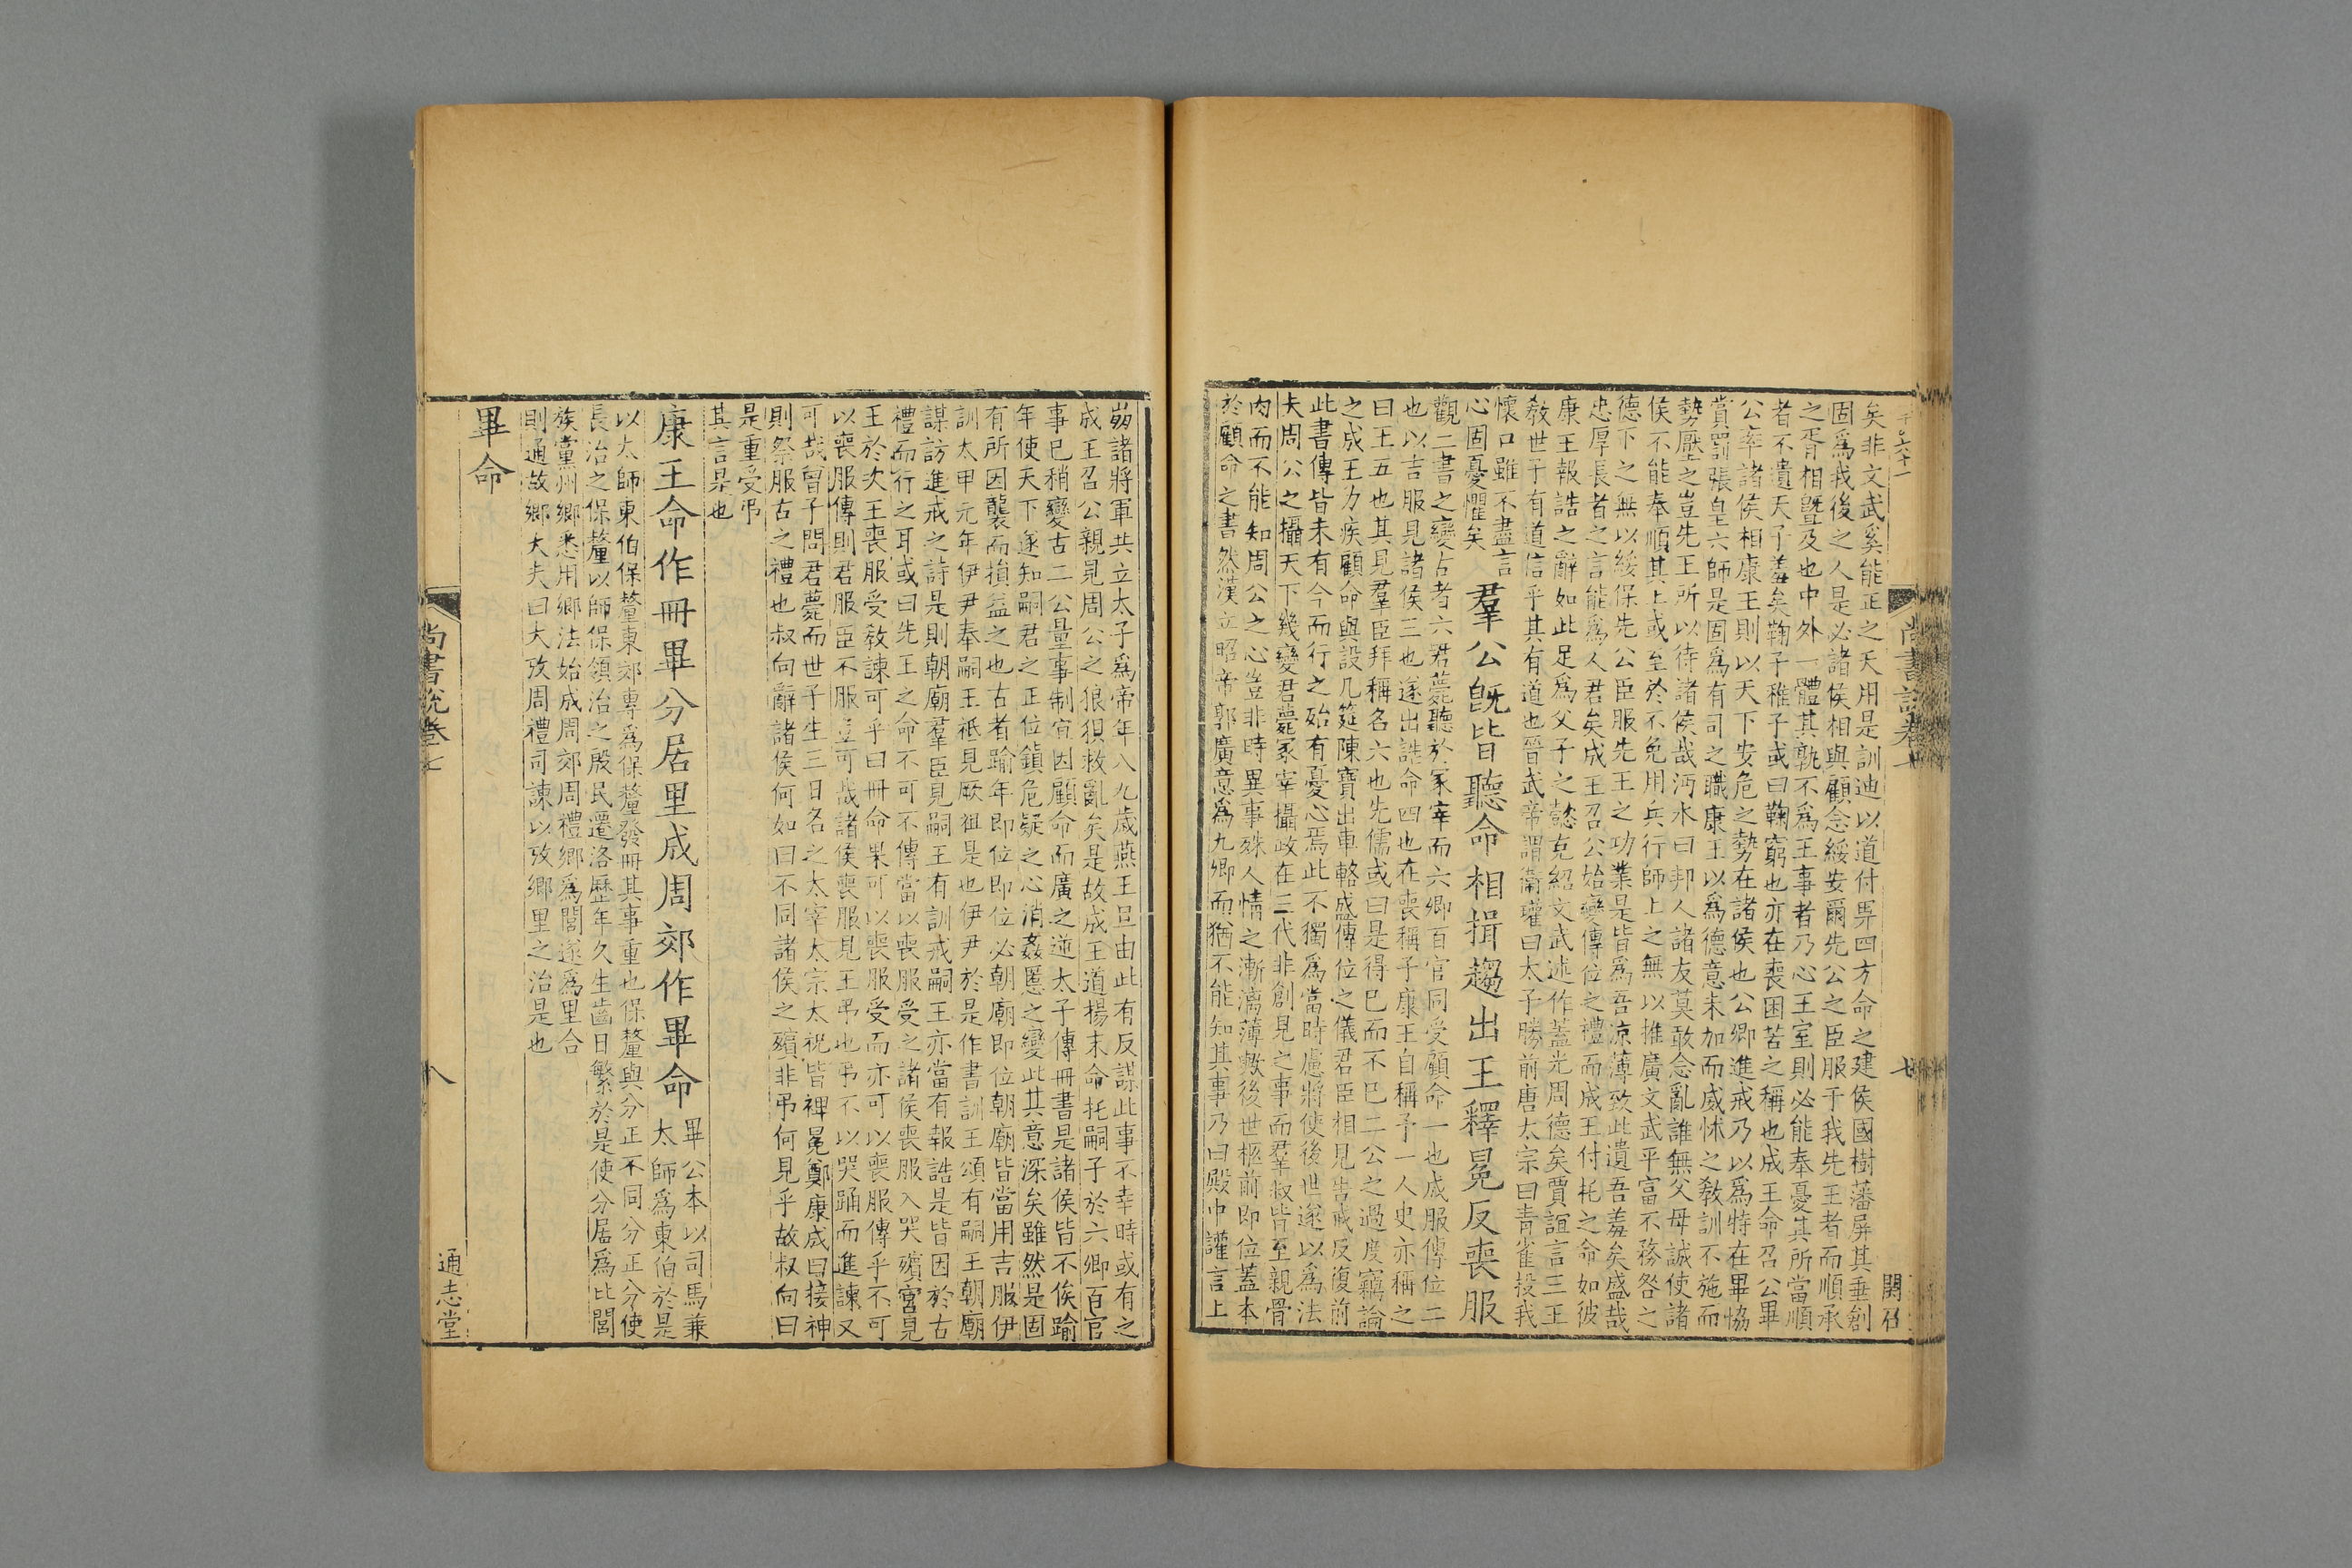 矣非文武奚能正之天用是訓迪以道付畀四方命之建侯國樹藩屏其垂創
固爲我後之人是必諸侯相與顧念綏安爾先公之臣服于我先王者而順承
之胥相曁及也中外一體其孰不爲王事者乃心王室則必能奉憂其所當順
者不遺天子羞矣鞠子稚子或曰鞠窮也亦在喪困苦之稱也成王命召公畢
公率諸侯相康王則以天下安危之勢在諸侯也公卿進戒乃以爲特在畢協
賞罰張皇六師是固爲有司之職康王以爲德意未加而威怵之敎訓不施而
勢壓之豈先王所以待諸侯哉沔水曰邦人諸友莫敢念亂誰無父母誠使諸
侯不能奉順其上或至於不免用兵行師上之無以推廣文武平富不務咎之
德下之無以綏保先公臣服先王之功業是皆爲吾涼薄致此遺吾羞矣盛哉
忠厚長者之言能爲人君矣成王召公始變傳位之禮而成王付托之命如彼
康王報誥之辭如此足爲父子之懿克紹文武述作蓋光周德矣賈誼言三王
敎世子有道信乎其有道也晉武帝謂衞瓘曰太子勝前唐太宗曰靑雀投我
懷口雖不盡言
心固憂懼矣
羣公旣皆聽命相揖趨出王釋冕反喪服
觀二書之變古者六君薨聽於冡宰而六卿百官同受顧命一也成服傳位二
也以吉服見諸侯三也遂出誥命四也在喪稱子康王自稱予一人史亦稱之
曰王五也其見羣臣拜稱名六也先儒或曰是得已而不已二公之過度竊論
之成王力疾顧命與設几筵陳寶出車輅盛傳位之儀君臣相見告戒反復前
此書傳皆未有今而行之殆有憂心焉此不獨爲當時慮將使後世遂以爲法
夫周公之攝天下幾變君薨冡宰攝政在三代非創見之事而羣叔皆至親骨
肉而不能知周公之心豈非時異事殊人情之漸漓薄數後世柩前即位蓋本
於顧命之書然漢立昭帝郭廣意爲九卿而猶不能知其事乃曰殿中讙言上
尚書說卷七
七
崩諸將軍共立太子爲帝年八九歲燕王旦由此有反謀此事不幸時或有之
成王召公親見周公之狼狽救亂矣是故成王道揚末命托嗣子於六卿百官
事已稍變古二公量事制宜因顧命而廣之逆太子傳冊書是諸侯皆不俟踰
年使天下遂知嗣君之正位鎮危疑之心消姦慝之變此其意深矣雖然是固
有所因襲而損益之也古者踰年即位即位必朝廟即位朝廟皆當用吉服伊
訓太甲元年伊尹奉嗣王祗見厥祖是也伊尹於是作書訓王頌有嗣王朝廟
謀訪進戒之詩是則朝廟羣臣見嗣王有訓戒嗣王亦當有報誥是皆因於古
禮而行之耳或曰先王之命不可不傳當以喪服受之諸侯喪服入哭殯宮見
王於次王喪服受敎諫可乎曰冊命果可以喪服受而亦可以喪服傳乎不可
以喪服傳則君服臣不服豈可哉諸侯喪服見王弔也弔不以哭踊而進諫又
可哉曾子問君薨而世子生三日名之太宰太宗太祝皆裨冕鄭康成曰接神
則祭服古之禮也叔向辭諸侯何如曰不同諸侯之殯非弔何見乎故叔向曰
是重受弔
其言是也
康王命作冊畢分居里成周郊作畢命
畢公本以司馬兼
太師爲東伯於是
以太師東伯保釐東郊專爲保釐發冊其事重也保釐與分正不同分正分使
長治之保釐以師保領治之殷民遷洛歷年久生齒日繁於是使分居爲比閭
族黨州鄉悉用鄉法始成周郊周禮鄉爲閭遂爲里合
則通故鄉大夫曰大攷周禮司諫以攷鄉里之治是也
畢命
尚書說卷七
八
通志堂